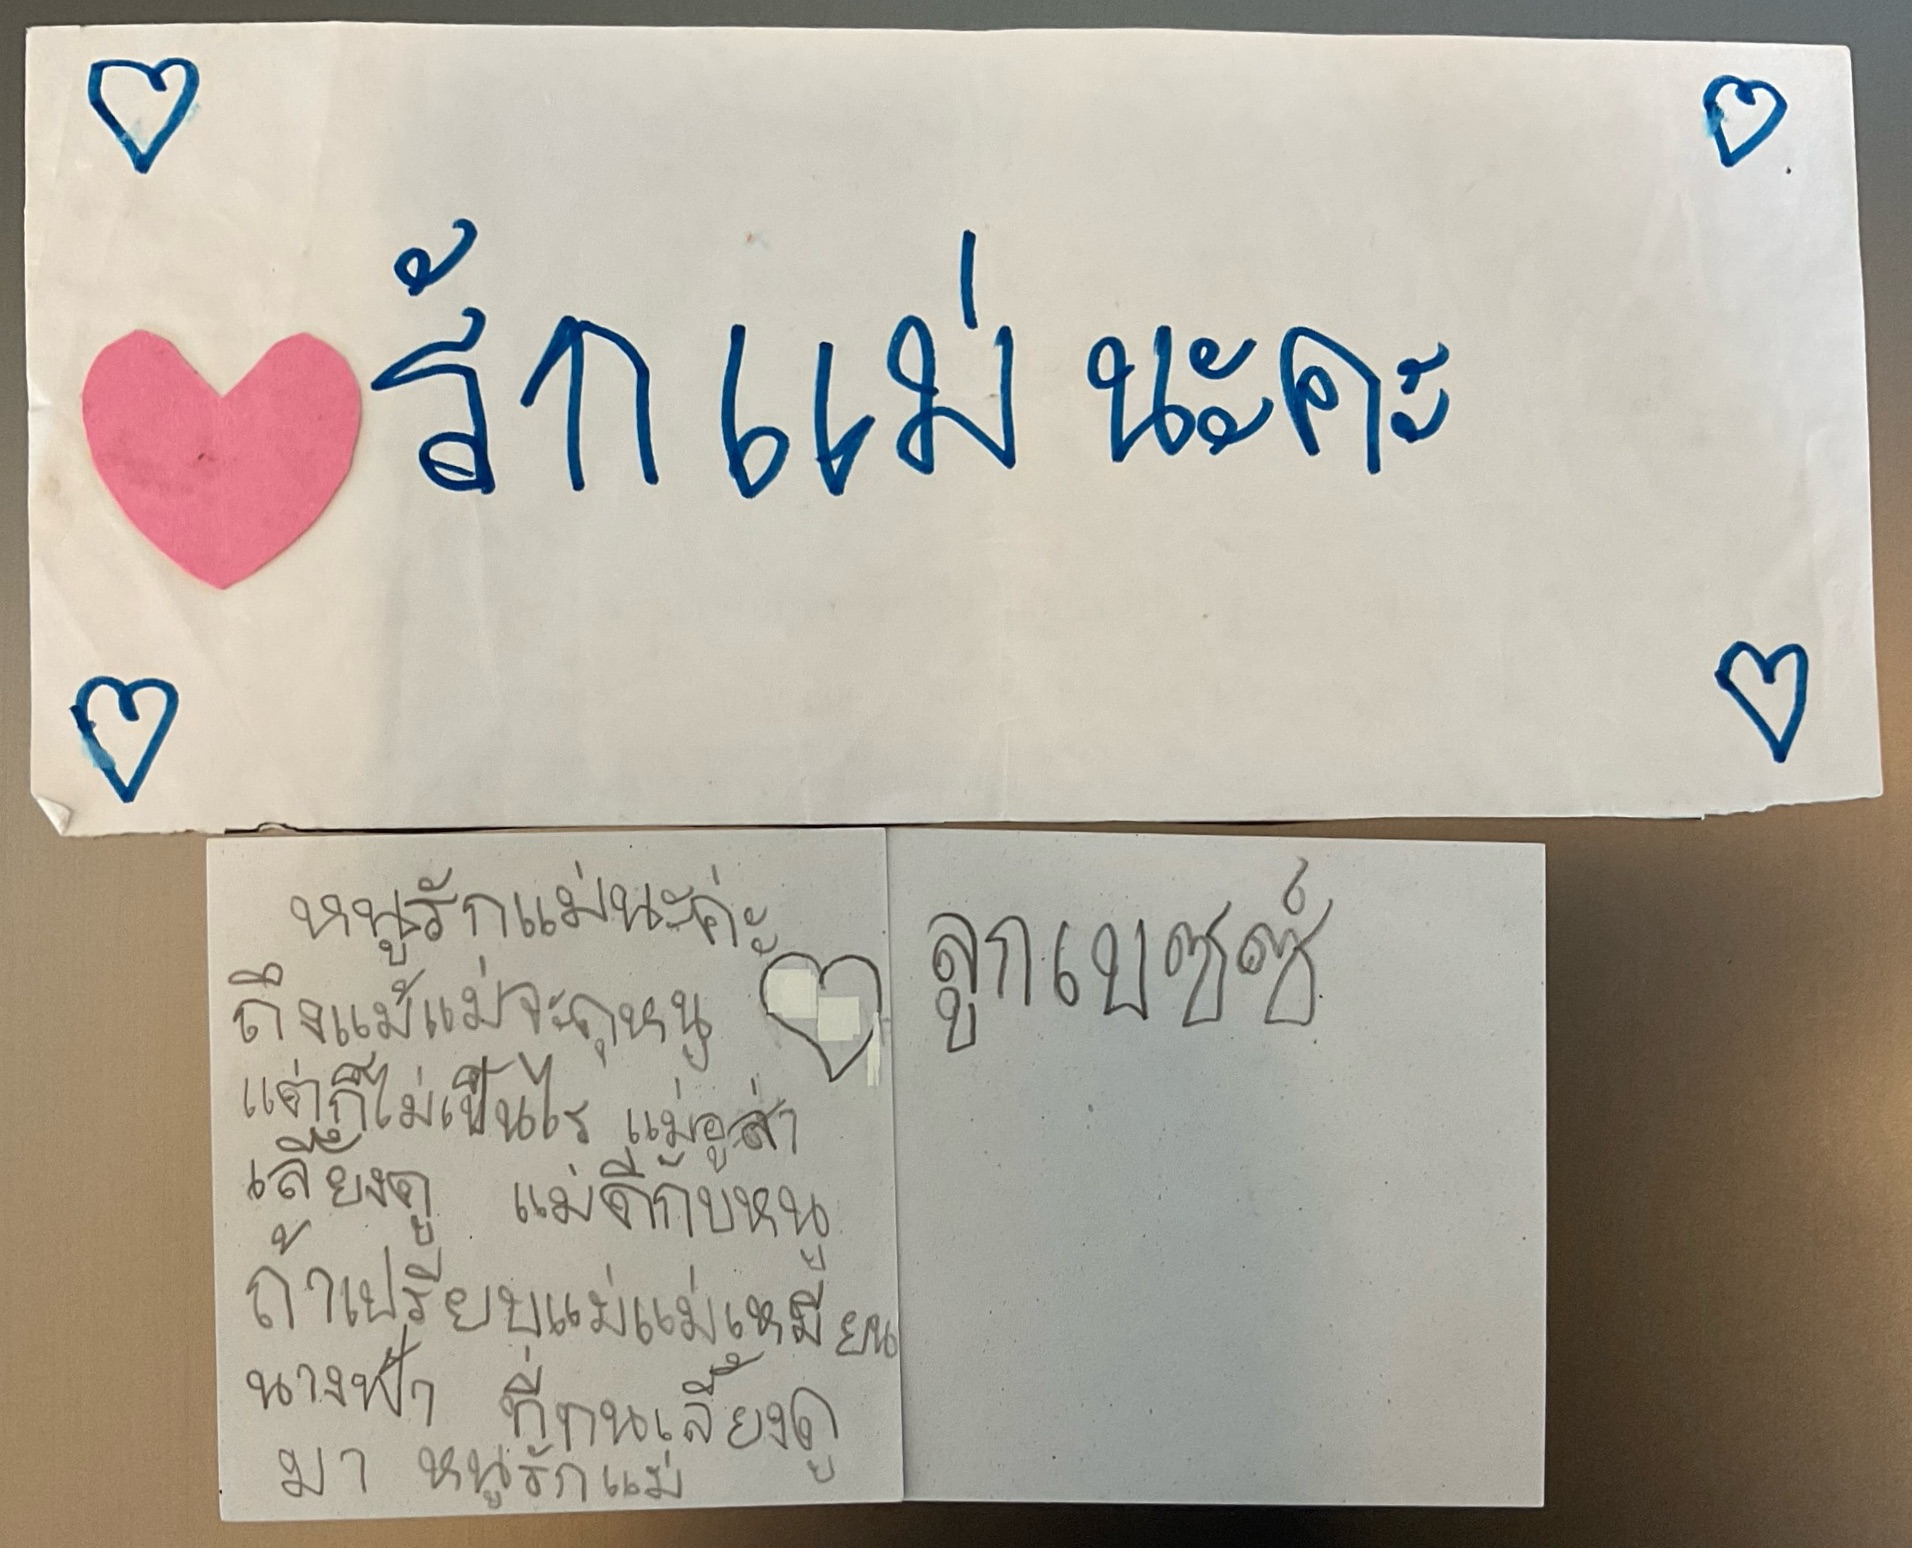 รักแม่ นะคะ
หนูรักแม่นะค่ะ
ถึงแม้แม่จะดุหนู
แต่ก็ไม่เป็นไร แม่อูส่า
เลี้ยงดู แม่ดีกับหนู
ถ้าเปรียบแม่แม่เหมือน
นางฟ้า ที่ทนเลี้ยงดู
มา หนูรักแม่
ลูกเบซซ์